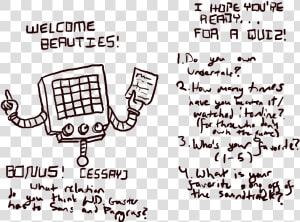 WELCOME
BEAUTIES!
I HOPE YOU'RE
READY...
FOR A QUIZ!
1. Do you own
Undertale?
2. How many times
have you beaten it/
watched it online?
(For those who don't
own the game)
3. Who's your favorite?
(1-5)
4. What is your
favorite song off of
the soundtrack?
BONUS! [ESSAY]
What relation
do you think W.D. Gaster
has to Sans and Papyrus?